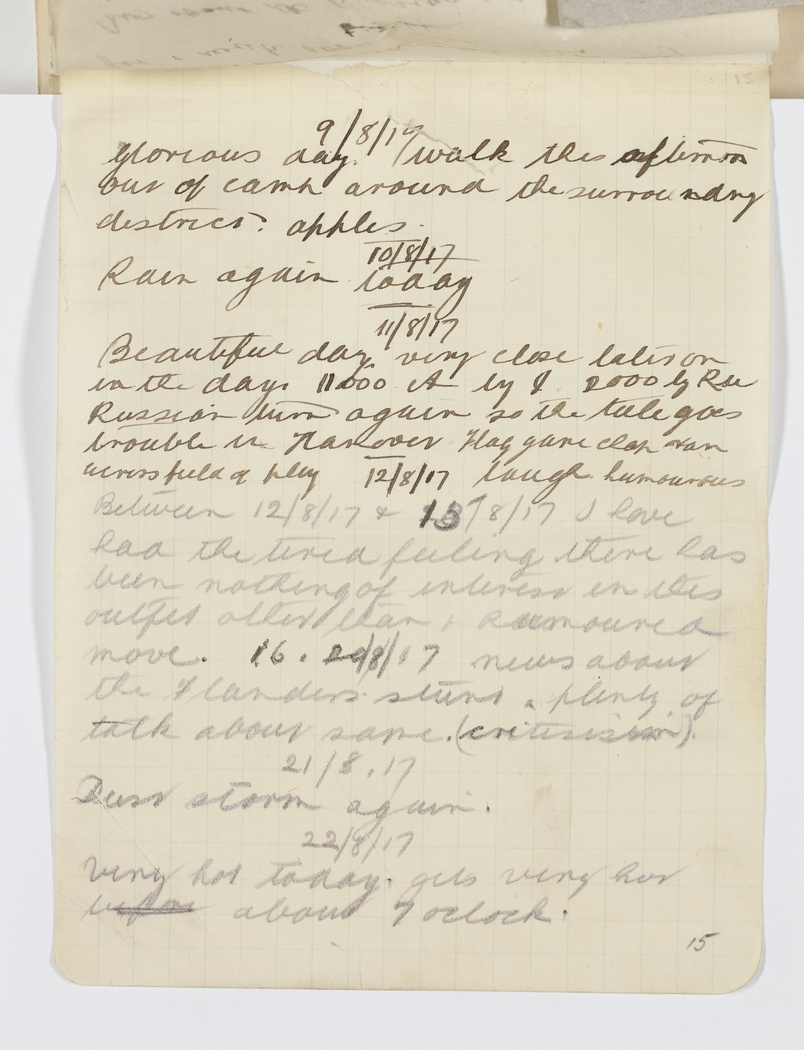 9/8/17
glorious day. walk this afternoon
out of camp around the surrounding
district: apples.
10/8/17
Rain again today
11/8/17
Beautiful day, very close later on
in the day. 11000 by 2000 by
Russian turn again so the tale goes
trouble in Hanover Flag gave clap ran
across field of play 12/8/17 laugh humourous
Between 12/8/17 & 15/8/17 I have
had the tired feeling there has
been nothing of interest in this
outfit other than a Raumoured
move. 16. 20/8/17 news about
the Flanders stunt. plenty of
talk about same. (critisism).
21/8.17
Dust storm again.
22/8/17
Very hot today. gets very hot
about 7 oclock.
15